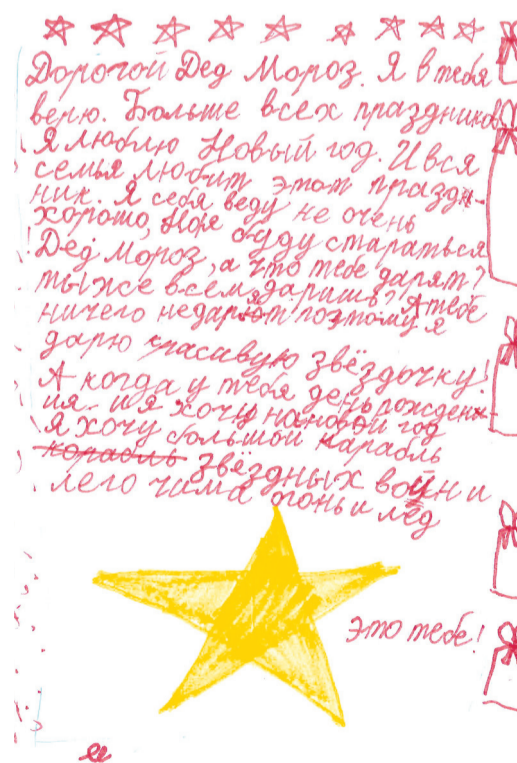 Дорогой Дед Мороз. Я в тебя
верю. Больше всех праздников
Я люблю Новый год. И вся
семья любит этот праздн-
ник. Я себя веду не очень
хорошо, Но я буду стараться
Дед Мороз, а что тебе дарят?
ты же всем даришь? А тебе
ничего недарят поэтому я
дарю красавую звёздочку!
А когда у тебя день рожден
ия. и я хочу на новой год
я хочу большой карабль
корабль звёздных войн и
лего чима огонь и лёд
это тебе!